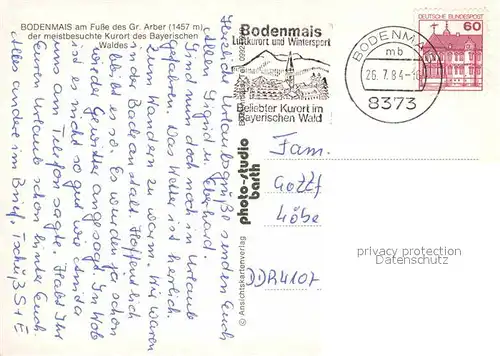 BODENMAIS am Fuße des Gr. Arber (1457 m),
der meistbesuchte Kurort des Bayerischen
Waldes
Herzliche Urlaubsgrüße senden Euch
Allen Sigrid u. Eberhard.
Sind nun doch noch in Urlaub
gefahren. Das Wetter ist herrlich.
Zum Wandern zu warm. Wir waren
in der Badeanstalt. Hoffentlich
bleibt es so. Es wurden ja schon
wieder Gewitter angesagt. In Hof
ist es nicht so gut wie
uns am Telefon sagte. Habt Ihr
Euren Urlaub schon hinter Euch.
Alles andere im Brief. Tschüß S + E.
Bodenmais
Luftkurort und Wintersport
Beliebter Kurort im
Bayerischen Wald
BODENMAIS
mb
26.7.84-16
8373
DEUTSCHE BUNDESPOST
60
photo-studio
barth
© Ansichtskartenverlag
Fam.
Gottf
Löbe
DDR 4107
privacy protection
Datenschutz